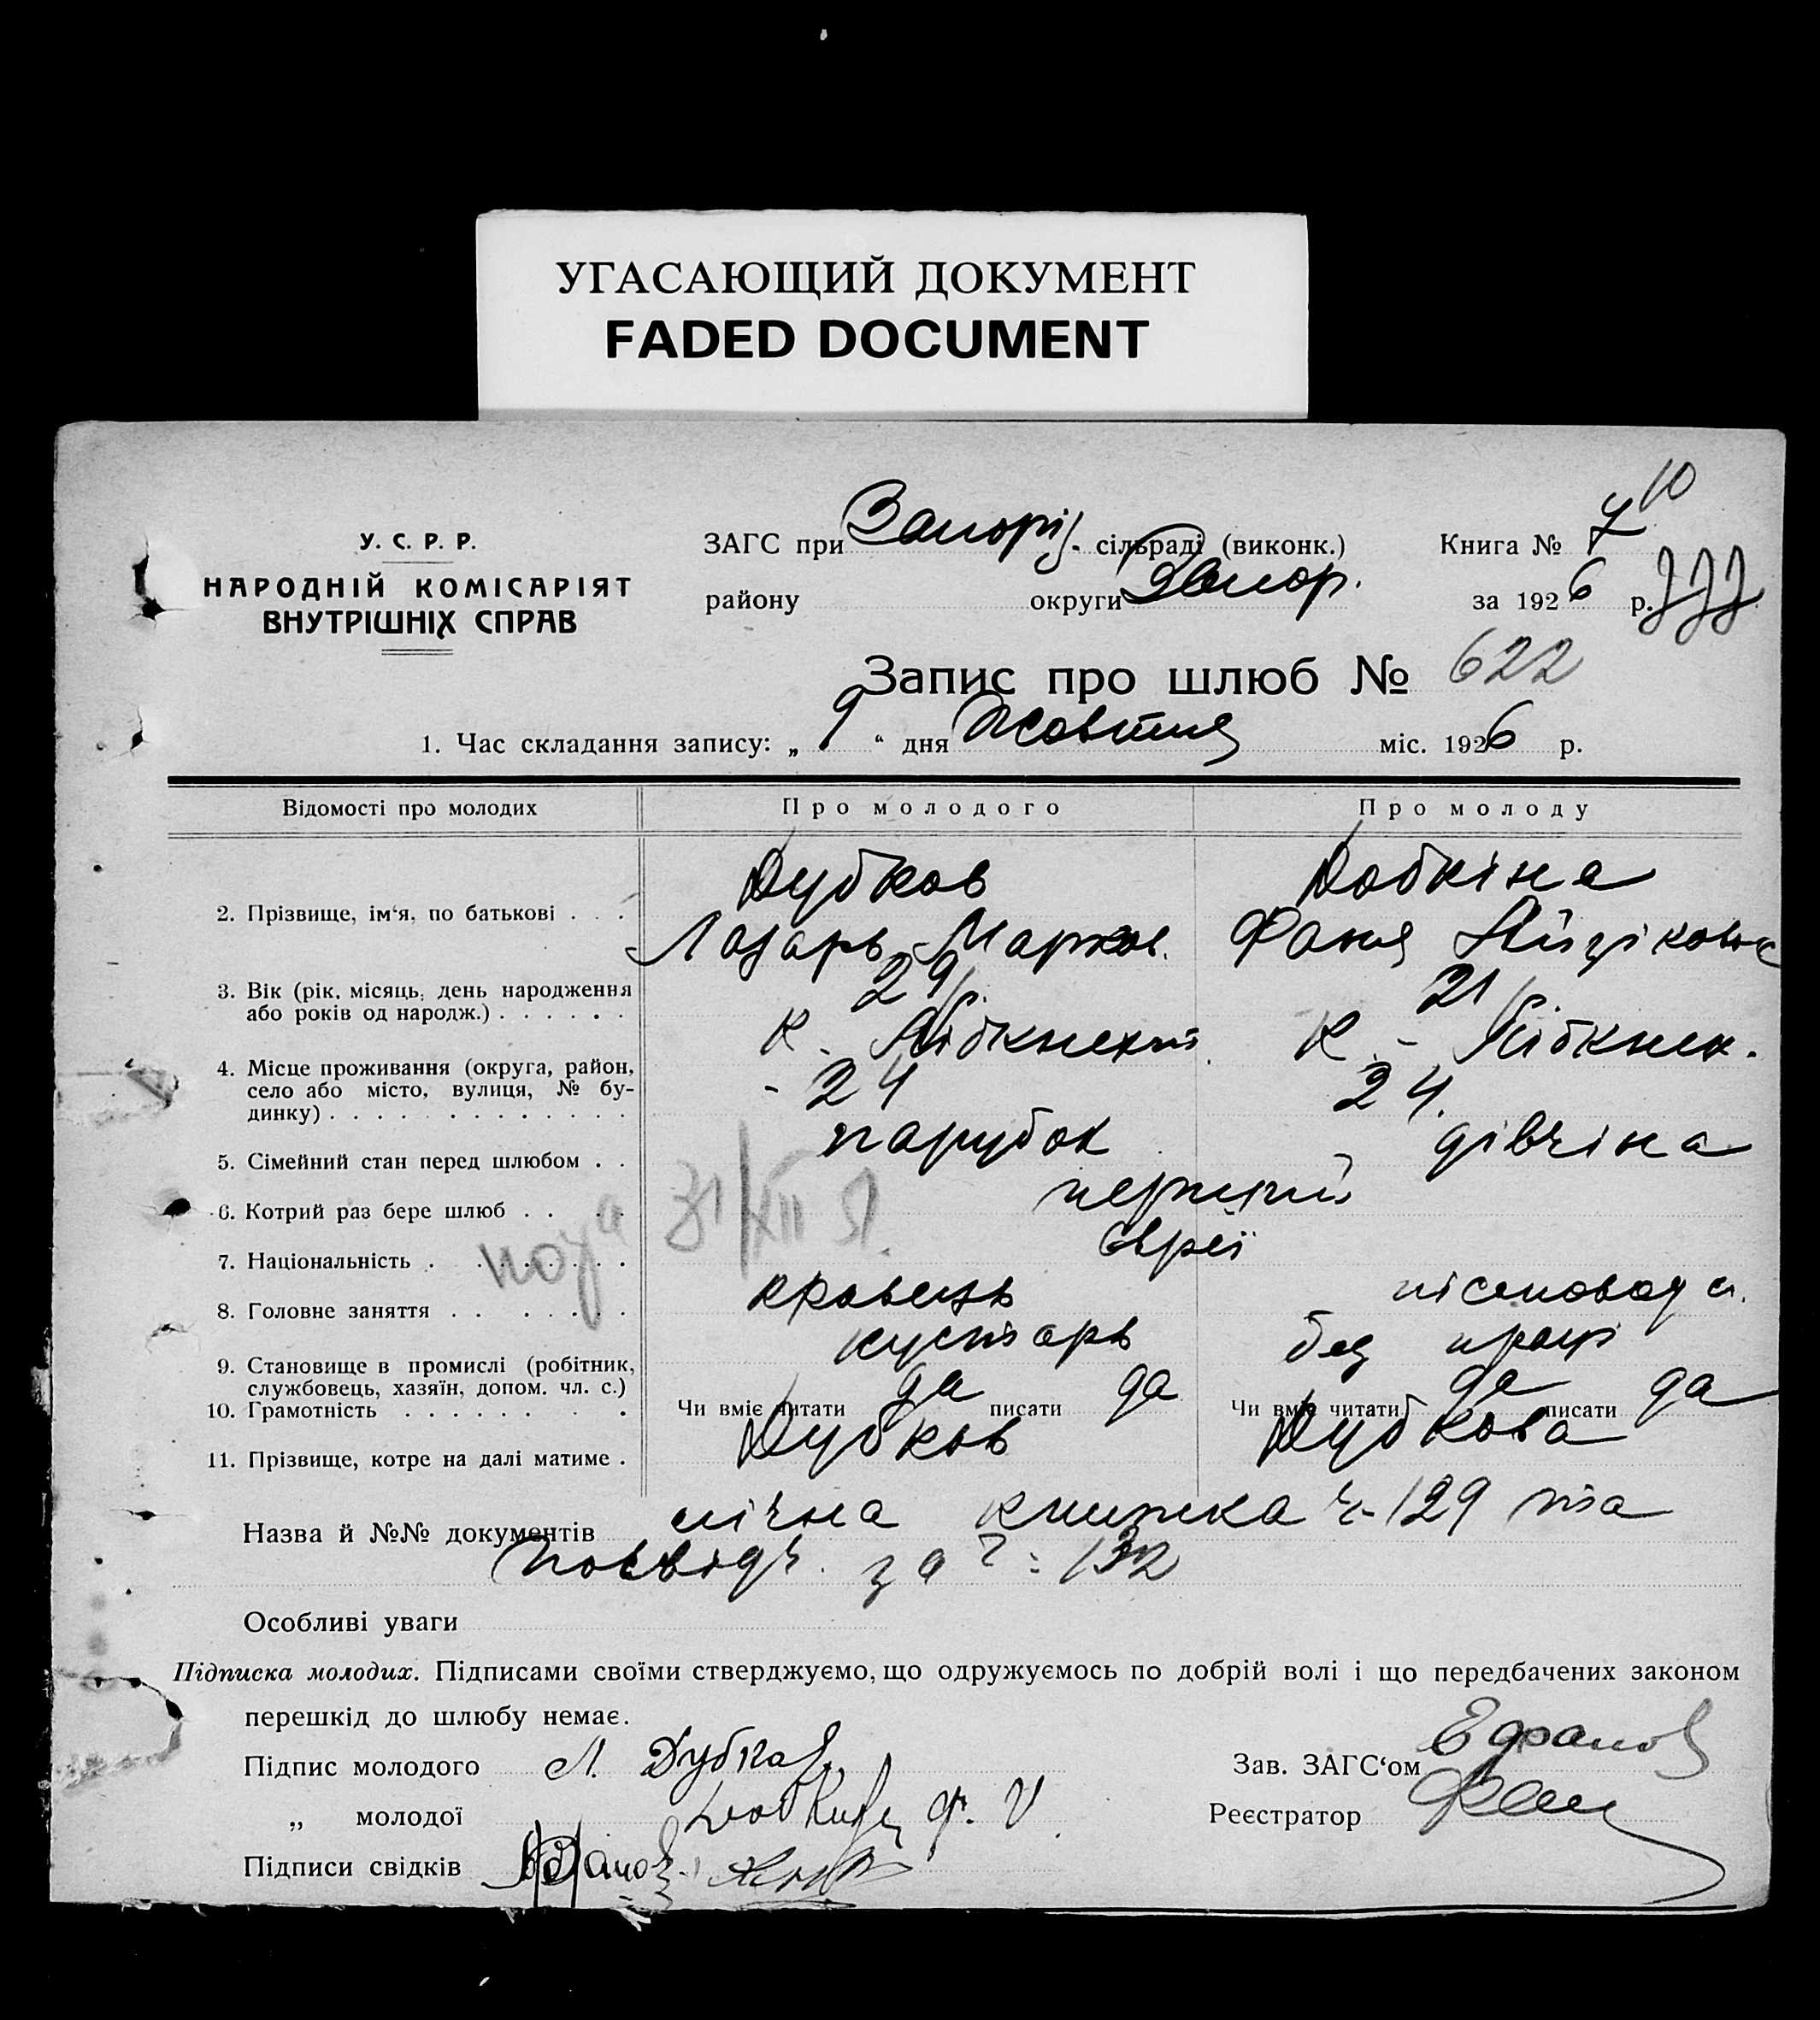 УГАСАЮЩИЙ ДОКУМЕНТ
FADED DOCUMENT
10
У. С. Р. Р.
НАРОДНІЙ КОМІСАРІЯТ
ВНУТРІШНІХ СПРАВ
ЗАГС при Запоріз. сільраді (виконк.) Книга № 7
району округи Запор. за 1926 р.
Запис про шлюб № 622
1. Час складання запису: „ 9 “ дня Жовтня міс. 1926 р.
Відомості про молодих Про молодого Про молоду
Дубков Добкіна
2. Прізвище, ім‘я, по батькові . . .
Лазарь Марков. Фаня Айзіковна
3. Вік (рік, місяць, день народження 29 р. 21 р.
або років од народж.) . . . . . .
К. - Лібкнехт. К. - Лібкнех.
4. Місце проживання (округа, район,
село або місто, вулиця, № бу- - 24 24.
динку) . . . . . . . . . . . . .
5. Сімейний стан перед шлюбом . . парубок дівчіна
6. Котрий раз бере шлюб . . . . перший
31/XII
7. Національність . . . . . . . . Євреї
8. Головне заняття . . . . . . . кравець
9. Становище в промислі (робітник, кустарь без праці
службовець, хазяїн, допом. чл. с.)
10. Грамотність . . . . . . . . Чи вміє читати да писати да Чи вміє читати да писати да
11. Прізвище, котре на далі матиме . Дубков Дубкова
Назва й №№ документів книжка ч- 129 та
посвідч. за ч: 132
Особливі уваги
Підписка молодих. Підписами своїми стверджуємо, що одружуємось по добрій волі і що передбачених законом
перешкід до шлюбу немає.
Підпис молодого Л. Дубков Зав. ЗАГС‘ом
„ молодої Ф. Реєстратор
Підписи свідків